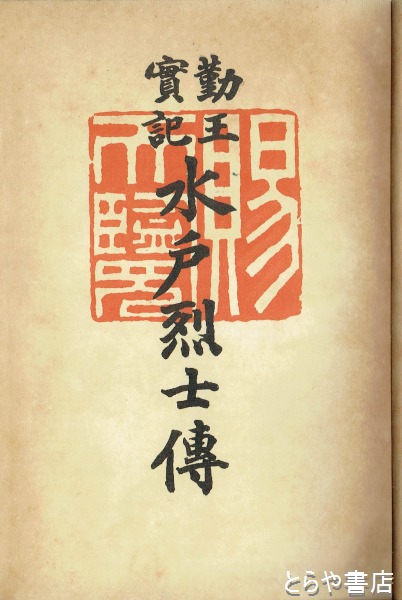 勤王
實記
水戸烈士傳
賜
天覽
とらや書店